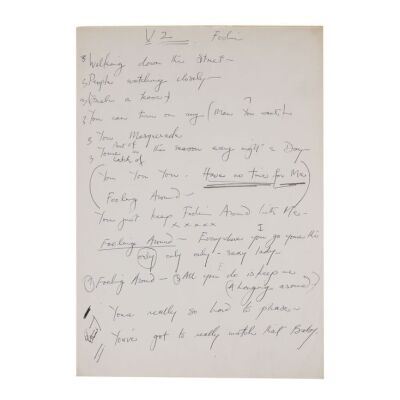 V 2 Foolin
3 Walking down this street –
3 People watching closely –
3 You can turn on my (Man You
3 You Masquerade
Part of
3 in this season every night & Day
(You You You. Have no time for Me)
Fooling Around –
You just keep Foolin Around with Me –
x x x x x
I
Fooling Around – Everywhere you go you're the
only only only – sexy lady
① Fooling Around – ② All you do is keep me
(A hanging around)
Your really so hard to please –
You've got to really watch that Baby